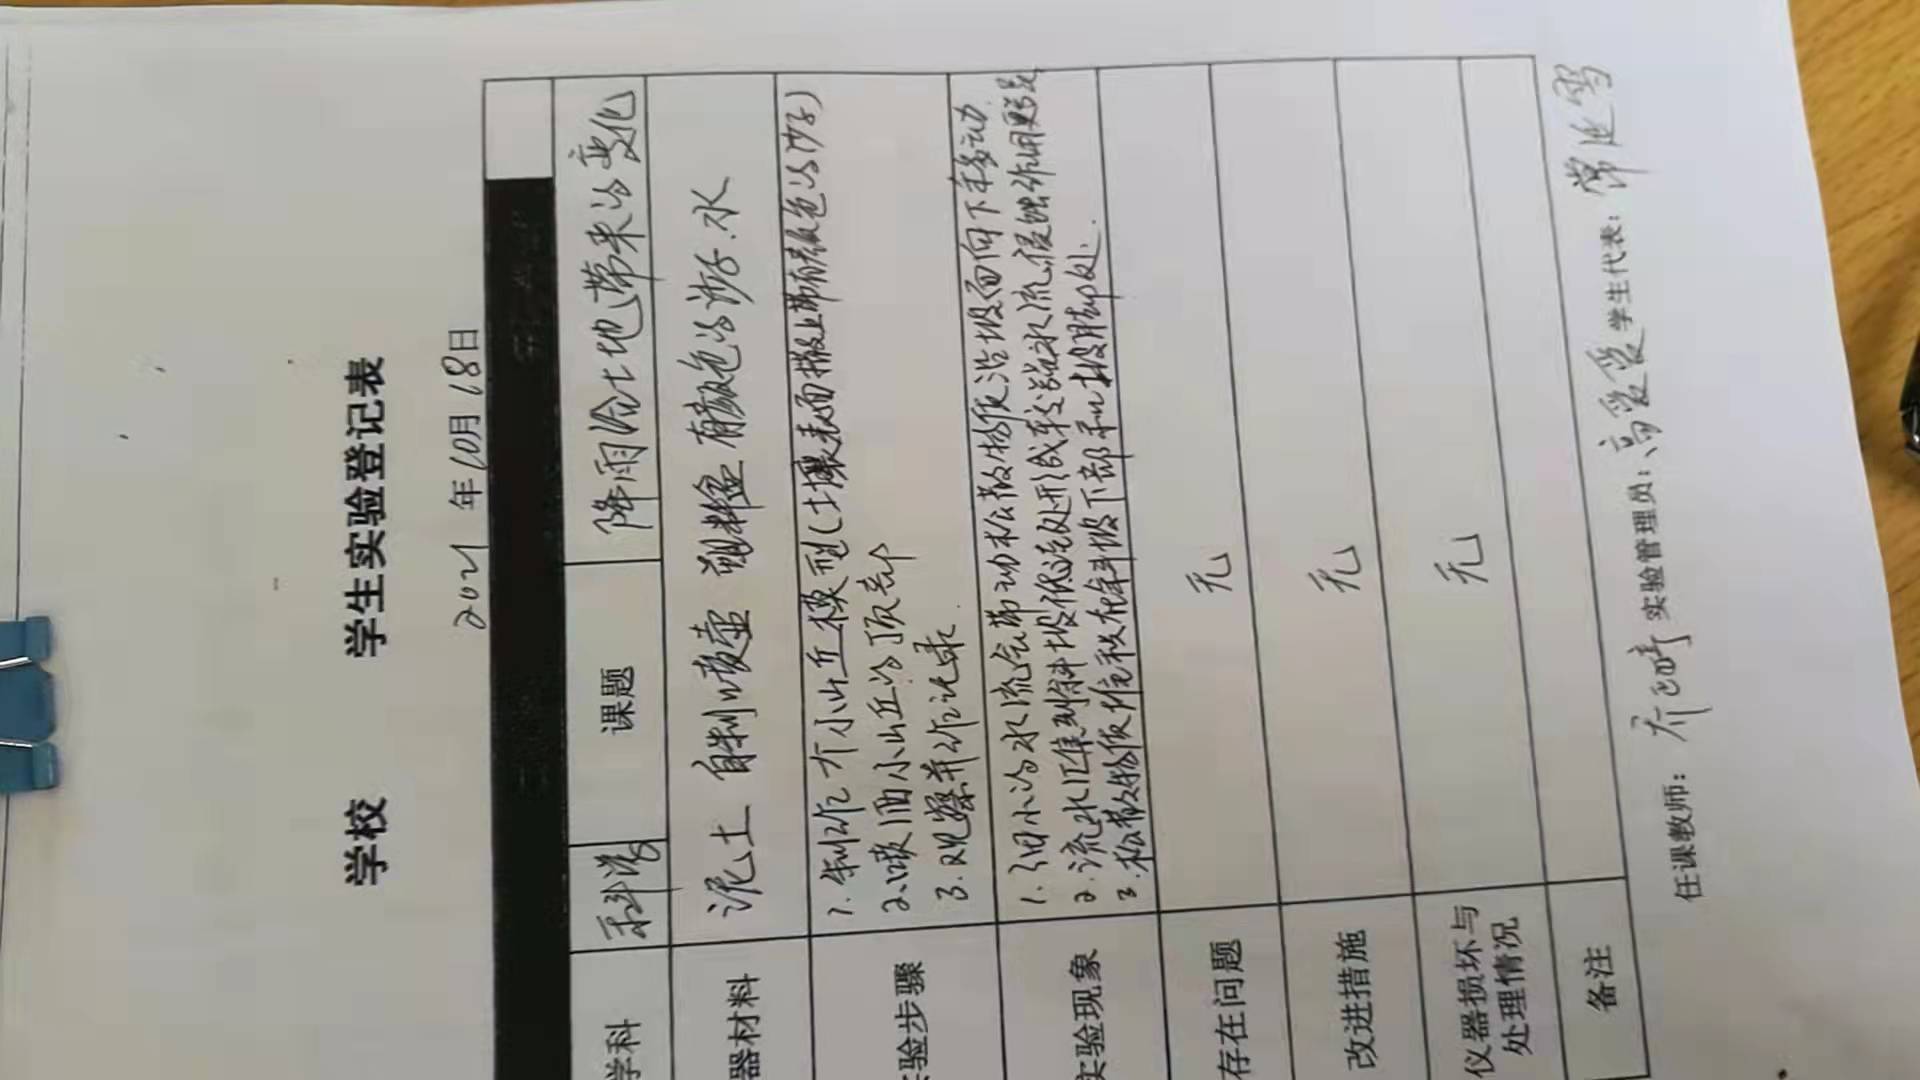 学校 学生实验登记表
2021 年 10月 18日
学科 科学 课题 降雨给土地带来的变化
器材料 泥土 自制喷壶 塑料盒 有颜色的沙子.水
验步骤 1. 制作一个小山丘模型(土壤表面撒上带有颜色的沙子)
2. 喷洒小山丘的顶部
3. 观察并作记录.
实验现象 1. 细小的水流会带动松散物质沿坡面向下移动.
2. 流水汇集到斜坡低洼处形成较强水流,侵蚀作用更明显
3. 松散物质堆积在斜坡下部和坡脚处.
存在问题 无
改进措施 无
仪器损坏与
处理情况 无
备注
任课教师: 乔 实验管理员: 高爱爱 学生代表: 常 雪